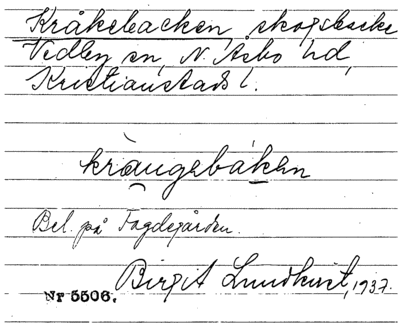 Kråkebacken, skogsbacke
Vedby sn, N. Åsbo hd,
Kristianstads l.
krångebáken
Bel. på Fagdegården.
Birgit Lundkvist, 1937.
Nr 5506.